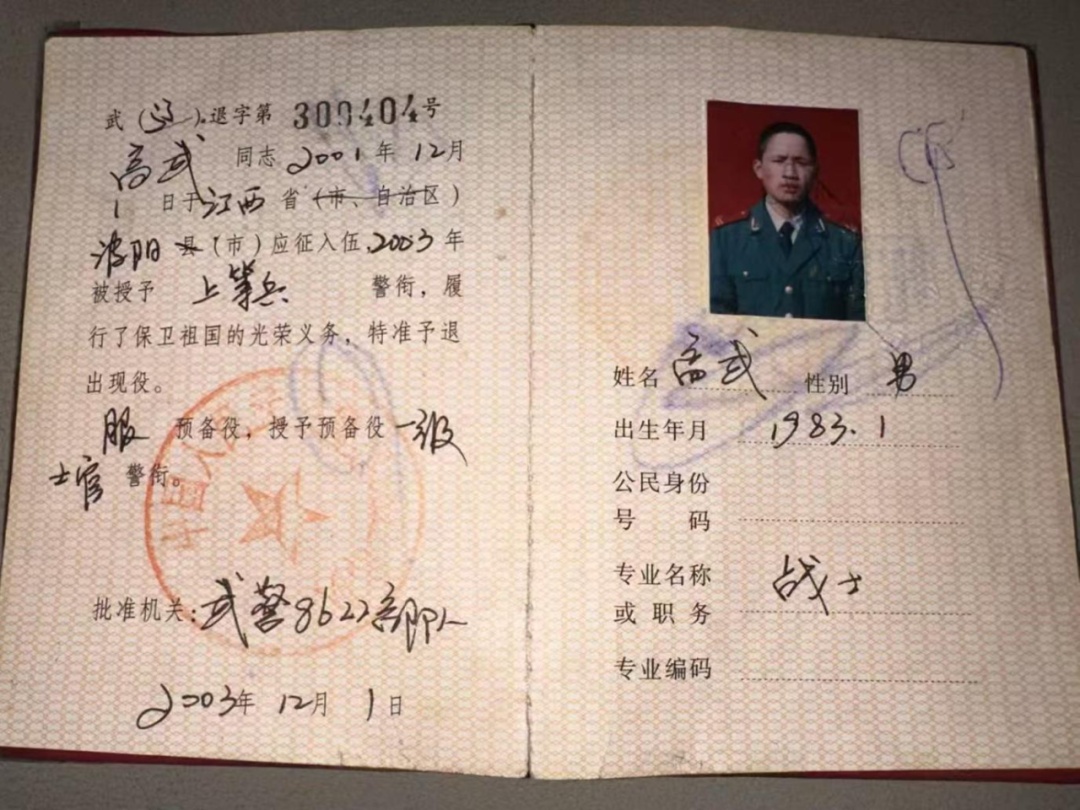 武(辽)退字第 300404号
高武 同志2001年12月
1 日于江西省(市、自治区)
波阳县(市)应征入伍,2003年
被授予 上等兵 警衔,履
行了保卫祖国的光荣义务,特准予退
出现役。
服 预备役,授予预备役一级
士官 警衔。
批准机关:武警8622部队
2003年12月1日
姓名 高武 性别 男
出生年月 1983.1
公民身份
号 码
专业名称 战士
或职务
专业编码